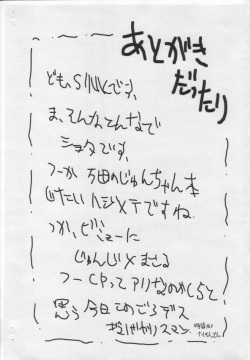 あとがき
だったり
ども、SINKです。
ま、そんなこんなで
ショタです。
つーか 万田のじゅんちゃん本
じたい ハジメテですね
つか、ビミョーに
じゅんじ×まさる
つーCPってアリなのかしらと
思う 今日このごろデス
スマン。